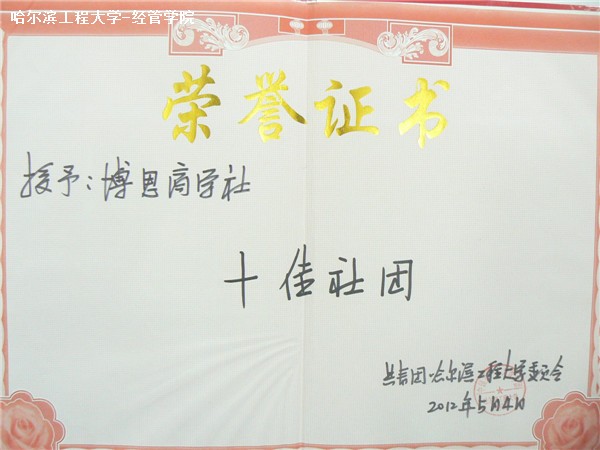 哈尔滨工程大学-经管学院
荣誉证书
授予:博思商学社
十佳社团
共青团哈尔滨工程大学委员会
2012年5月4日